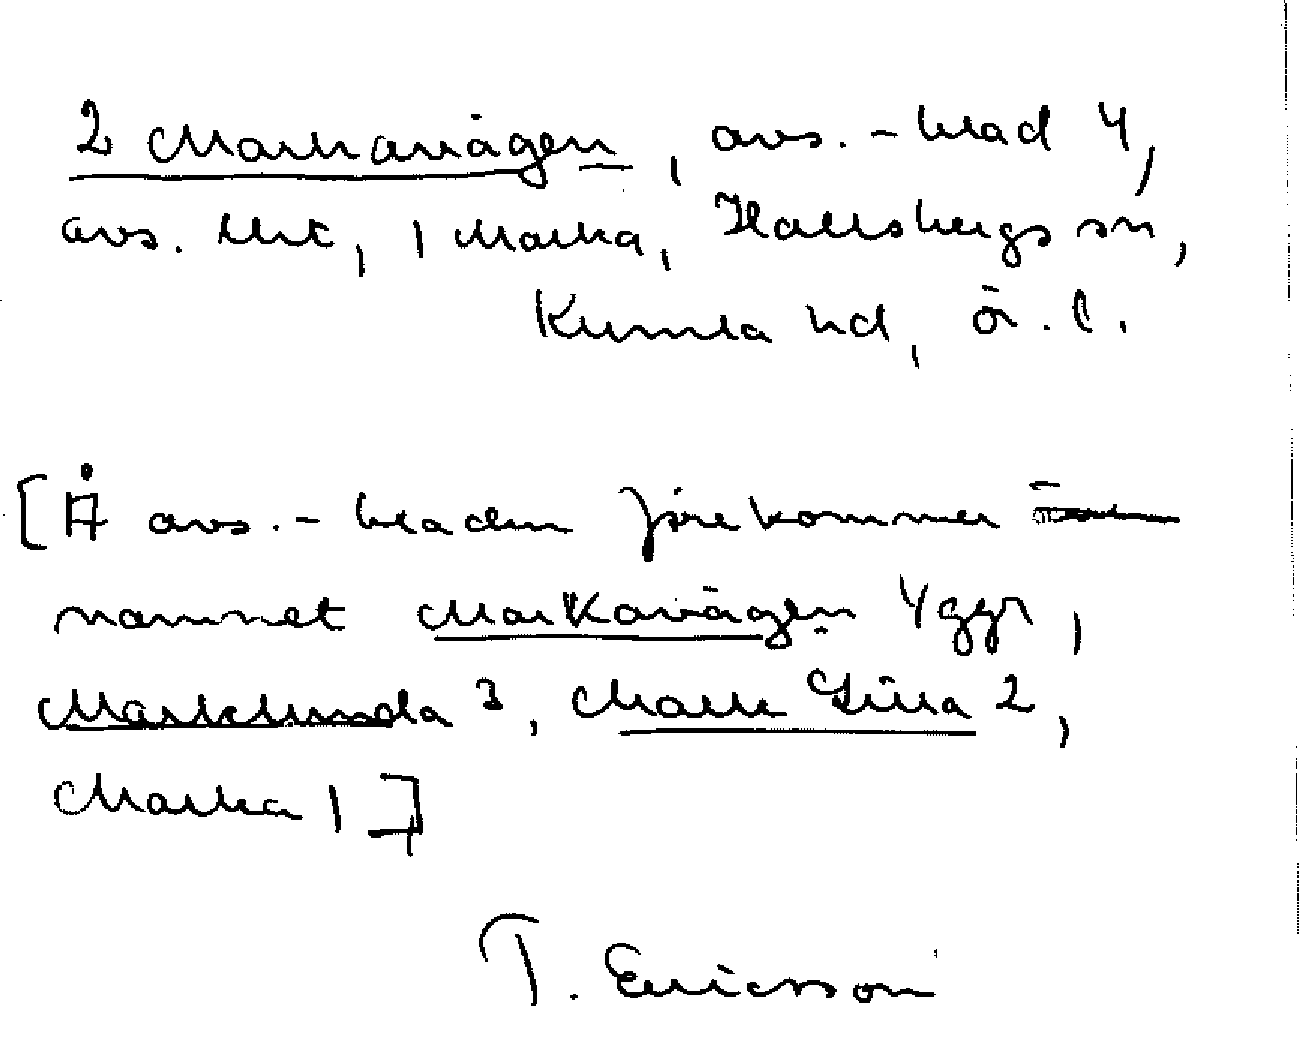 2 Markavägen, avs.-blad 4,
avs. , 1 Marka, Hallsbergs sn,
Kumla hd, ör. l.
[Å avs.-bladen förekommer
namnet Markavägen 4 ggr,
3, 2,
Marka 1]
T. Ericsson